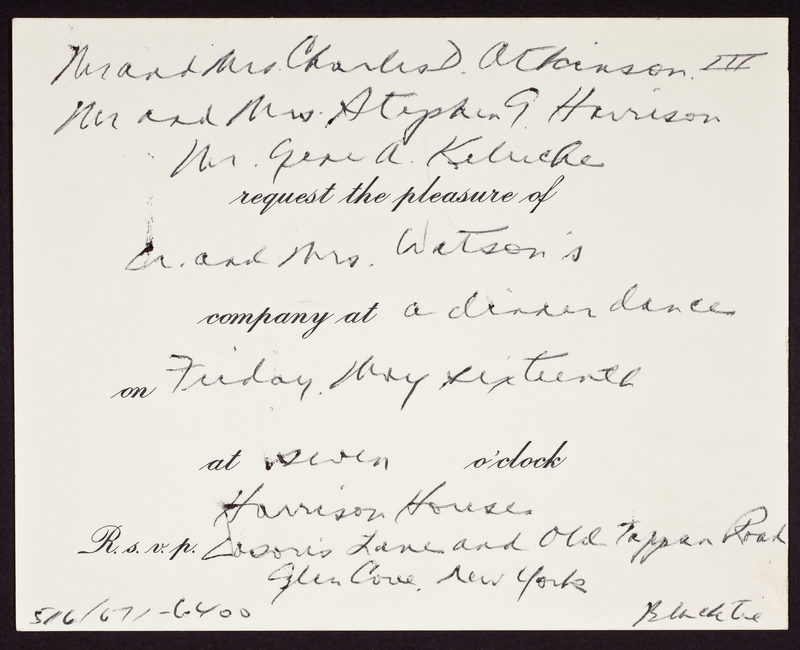 Mr and Mrs Charles D. Atkinson III
Mr and Mrs. Stephen G. Harrison
Mr. Gene A.
request the pleasure of
Dr. and Mrs. Watson's
company at a dinner dance
on Friday, May sixteenth
at seven o'clock
Harrison House
R.s.v.p. Dosoris Lane and Old Tappan Road
Glen Cove, New York
516/671-6400 Black tie